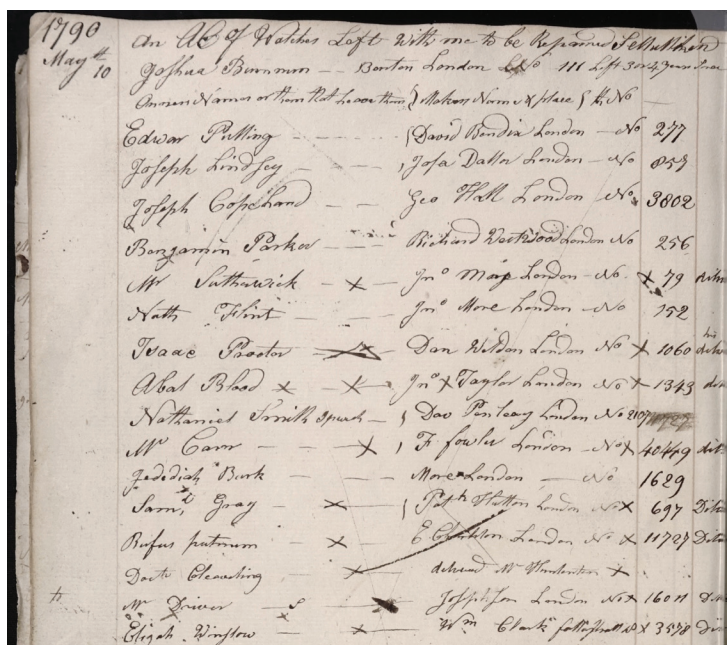 1790
May th 10 An Ac of Watches Left With me to be Repaired
Joshua Burnum -- Benton London No 111 Left 3 or 4 years
Owners Names or them that Leave them } Makers Name & place } th No
Edwar Pulling - - - David Bendix London - No 277
Joseph Lindsey - - - Josa Dallor London - No 853
Joseph Copeland - - Geo Hall London - No 3802
Benjamin Parker - - Richard Westwood London No 256
Mr Satherwick - x - Jno May London - No x 79
Nath Flint - - Jno More London - No 152
Isaac Procter - x - Dan Weldon London No x 1060
Abal Blood x - x - Jno x Taylor London No x 1343
Nathaniel Smith - Dav London No 2107
Mr Carr - - - x F. fowler London - No x 40449
Jedediah Burk - - More London - No 1629
Saml Gray - x - Hatton London No x 697
Rufus putnum - x - E London No x 11727
Doct Cleaveling - x - delivered Mr x
to Mr Driver - s - London No x 16011
Elijah Winslow - x - Wm Clark No x 3578